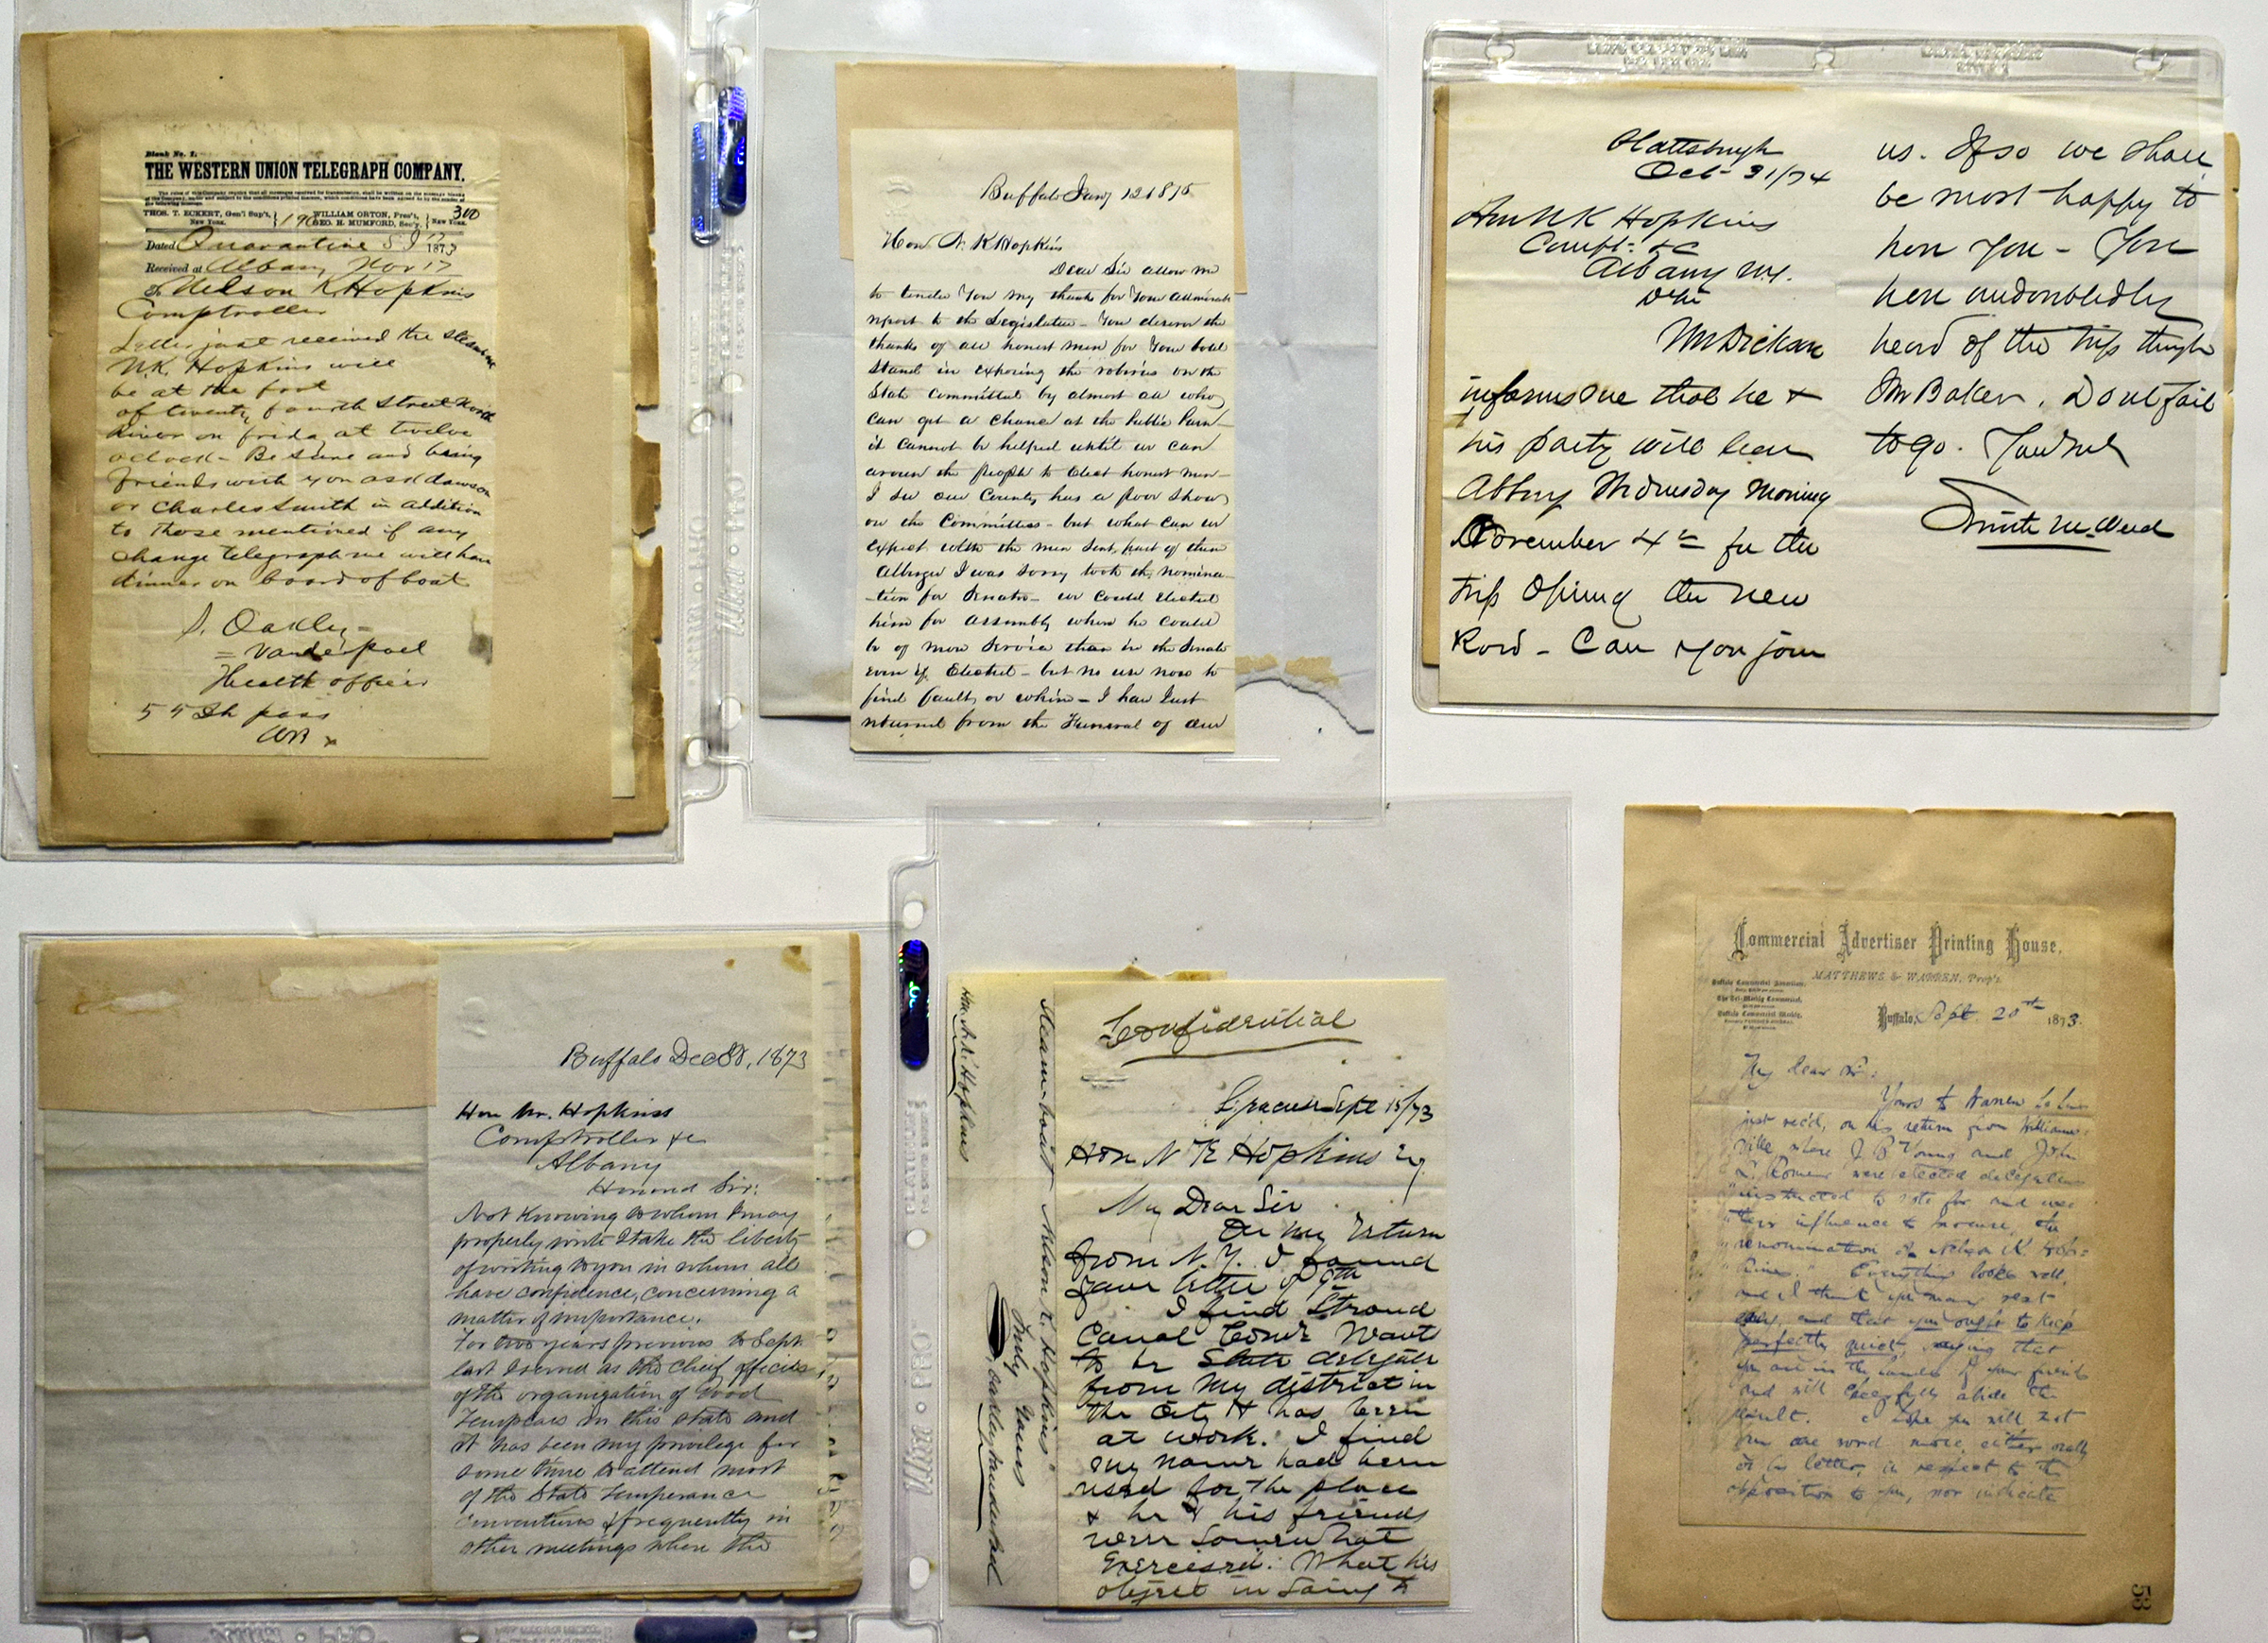 Blank No. 1.
THE WESTERN UNION TELEGRAPH COMPANY.
THOS. T. ECKERT, Gen'l Sup't, New York.
WILLIAM ORTON, Pres't,
GEO. H. MUMFORD, Sec'y, New York.
300
Dated Quarantine S I 17 1873
Received at Albany Nov 17
To Nelson K Hopkins
Comptroller
Letter just received the Steamer
N.K. Hopkins will
be at the foot
of twenty fourth Street North
River on friday at twelve
oclock - Be sure and bring
friends with you ask dawson
or Charles Smith in addition
to those mentioned if any
change telegraph me will have
dinner on board of boat
S. Oakley -
= Vanderpoel
Health officer
55 Dh paid
Buffalo Jany 12 1875
Hon. N. K Hopkins
Dear Sir allow me
to tender You my thanks for Your admirable
report to the Legislature - You deserve the
thanks of all honest men for Your bold
stand in exposing the roberies on the
State Committed by almost all who
can get a chance at the Public Purse
it cannot be helped until we can
arouse the people to Elect honest men -
I see our County has a poor show
on the Committees - but what can we
expect with the men sent, part of them
Alberger I was sorry took the nomina-
-tion for Senator - we could elected
him for assembly where he could
be of more Service than in the Senate
even if Elected - but no use now to
find fault, or whine - I have Just
returned from the Funeral of our
Plattsburgh
Oct 31/74
Hon N K Hopkins
Compt: &c
Albany N.Y.
D Sir
Mr Dickson
informs me that he &
his party will leave
Albany Wednesday Morning
November 4th for the
trip Opening the new
Road - Can you join
us. If so we shall
be most happy to
have You - You
have undoubtedly
heard of the trip through
Mr Baker. Dont fail
to go. Yours truly
Smith M. Weed
Buffalo Dec 8, 1873
Hon Mr. Hopkins
Comptroller &c
Albany
Honored Sir:
Not knowing to whom I may
properly write I take the liberty
of writing to you in whom all
have confidence, concerning a
matter of importance.
For two years previous to Sept.
last I served as the chief officer
of the organization of Good
Templars in this state and
it has been my privilege for
some time to attend most
of the State temperance
conventions & frequently in
other meetings where the
Steam-boat "Nelson K. Hopkins"
Truly Yours
Oakley Vanderpoel
Hon. N. K. Hopkins
Confidential
Syracuse Sept 15/73
Hon N K Hopkins
My Dear Sir
On my return
from N.Y. I found
your letter of 9th
I find Stroud
Canal Comr Wants
to be State delegate
from my district in
the City & has been
at work. I find
my name had been
used for the place
& he & his friends
were somewhat
exercised. What his
object in going to
Commercial Advertiser Printing House.
MATTHEWS & WARREN, Prop's
Buffalo Commercial Advertiser,
The Tri-Weekly Commercial,
Buffalo Commercial Weekly.
Buffalo, Sept. 20th 1873.
My dear Sir:
Yours to Warren
just rec'd, on his return from Williams-
ville where J B Young and John
L. Romer were elected delegates
"instructed to vote for and use
their influence to procure, the
renomination of Nelson K. Hop-
kins." Everything looks well,
and I think you may rest
easy, and that you ought to keep
perfectly quiet, saying that
you are in the hands of your friends
and will cheerfully abide the
result. I hope you will not
say one word more, either orally
or by letter, in respect to the
opposition to you, nor indicate
58